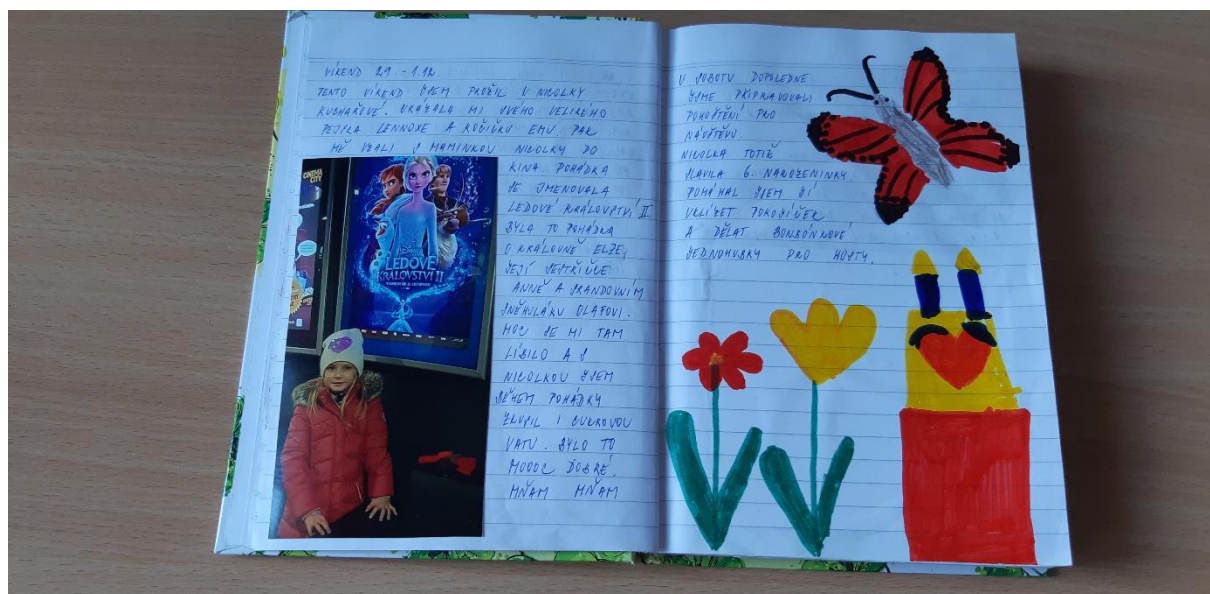 VÍKEND 29. - 1.12.
TENTO VÍKEND JSEM PROŽIL U NICOLKY
KUBHAŘOVÉ. UKÁZALA MI SVÉHO VELIKÉHO
PEJSKA LENNOXE A KOČIČKU EMU PAK
MĚ VZALI S MAMINKOU NICOLKY DO
KINA POHÁDKA
SE JMENOVALA
LEDOVÉ KRÁLOVSTVÍ II
BYLA TO POHÁDKA
O KRÁLOVNĚ ELZE,
JEJÍ SESTŘIČCE
ANNĚ A SRANDOVNÍM
SNĚHULÁKU OLAFOVI.
MOC SE MI TAM
LÍBILO A S
NICOLKOU JSEM
BĚHEM POHÁDKY
ZKUSIL I CUKROVOU
VATU. BYLO TO
MOOOC DOBRÉ.
MŇAM MŇAM
CINEMA
CITY
DISNEY
LEDOVÉ
KRÁLOVSTVÍ II
V SOBOTU DOPOLEDNE
JSME PŘIPRAVOVALI
POHOŠTĚNÍ PRO
NÁVŠTĚVU.
NICOLKA TOTIŽ
SLAVILA 6. NAROZENINKY.
POMÁHAL JSEM JÍ
UKLÍZET POKOJÍČEK
A DĚLAT BONBÓNKOVÉ
JEDNOHUBKY PRO HOSTY.